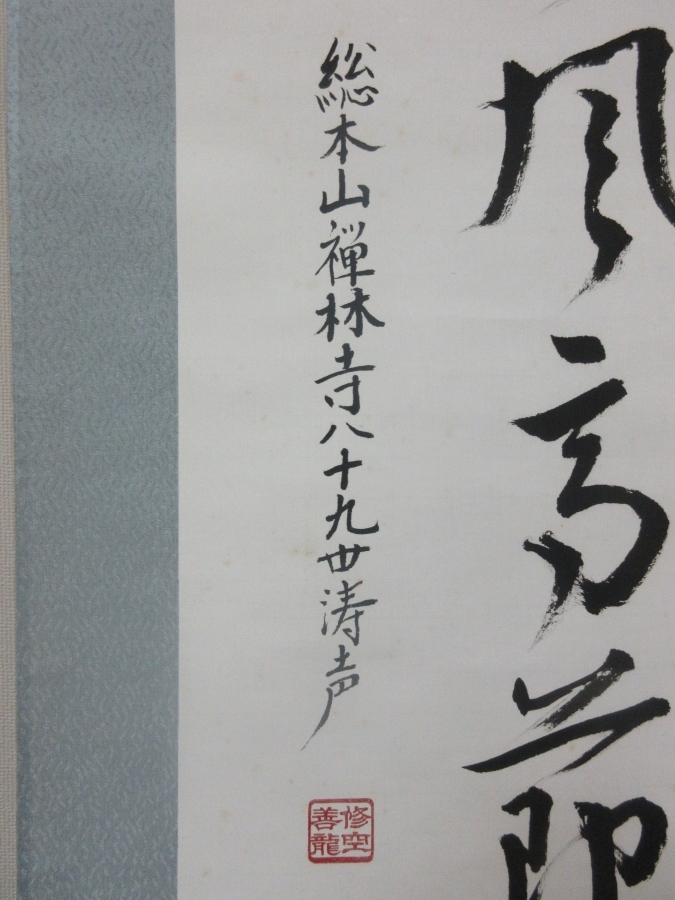 風高節
総本山禅林寺八十九世涛声
修空
善龍